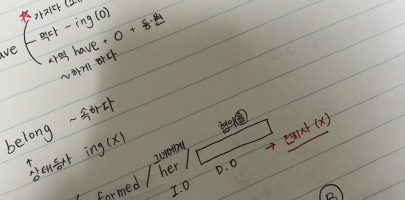 ★ 가지다
ave - 먹다 - ing(O)
사역 have + O + 동·원
~하게 하다
belong ~속하다
↑
상태동사 ing(X)
협의를
그녀에게
formed / her /
I.O D.O → 전치사 (X)
B